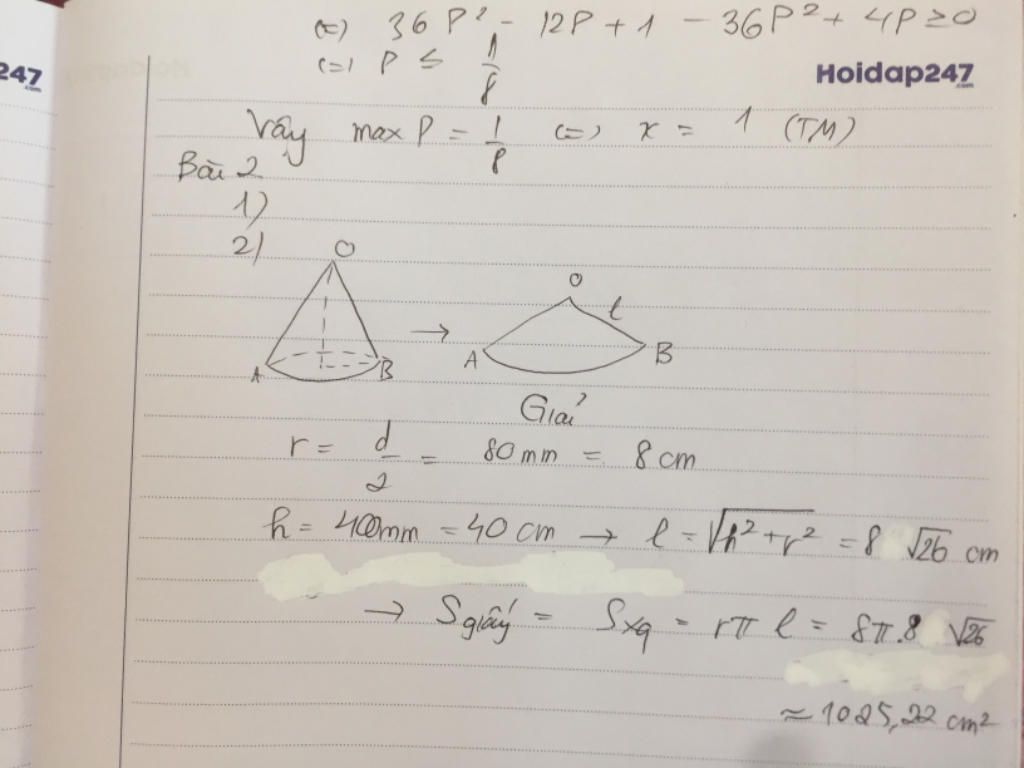 (=) 36P² - 12P + 1 - 36P² + 4P ≥ 0
(=) P ≤ 1/8
247
.com
Hoidap247
.com
Vậy max P = 1/8 (=) x = 1 (TM)
Bài 2
1)
2)
O
A
B
→
O
l
A
B
Giải
r = d/2 = 80mm = 8 cm
h = 400mm = 40 cm → l = √(h² + r²) = 8 √26 cm
→ S giấy = Sxq = rπ l = 8π.8 √26
≈ 1025,22 cm²